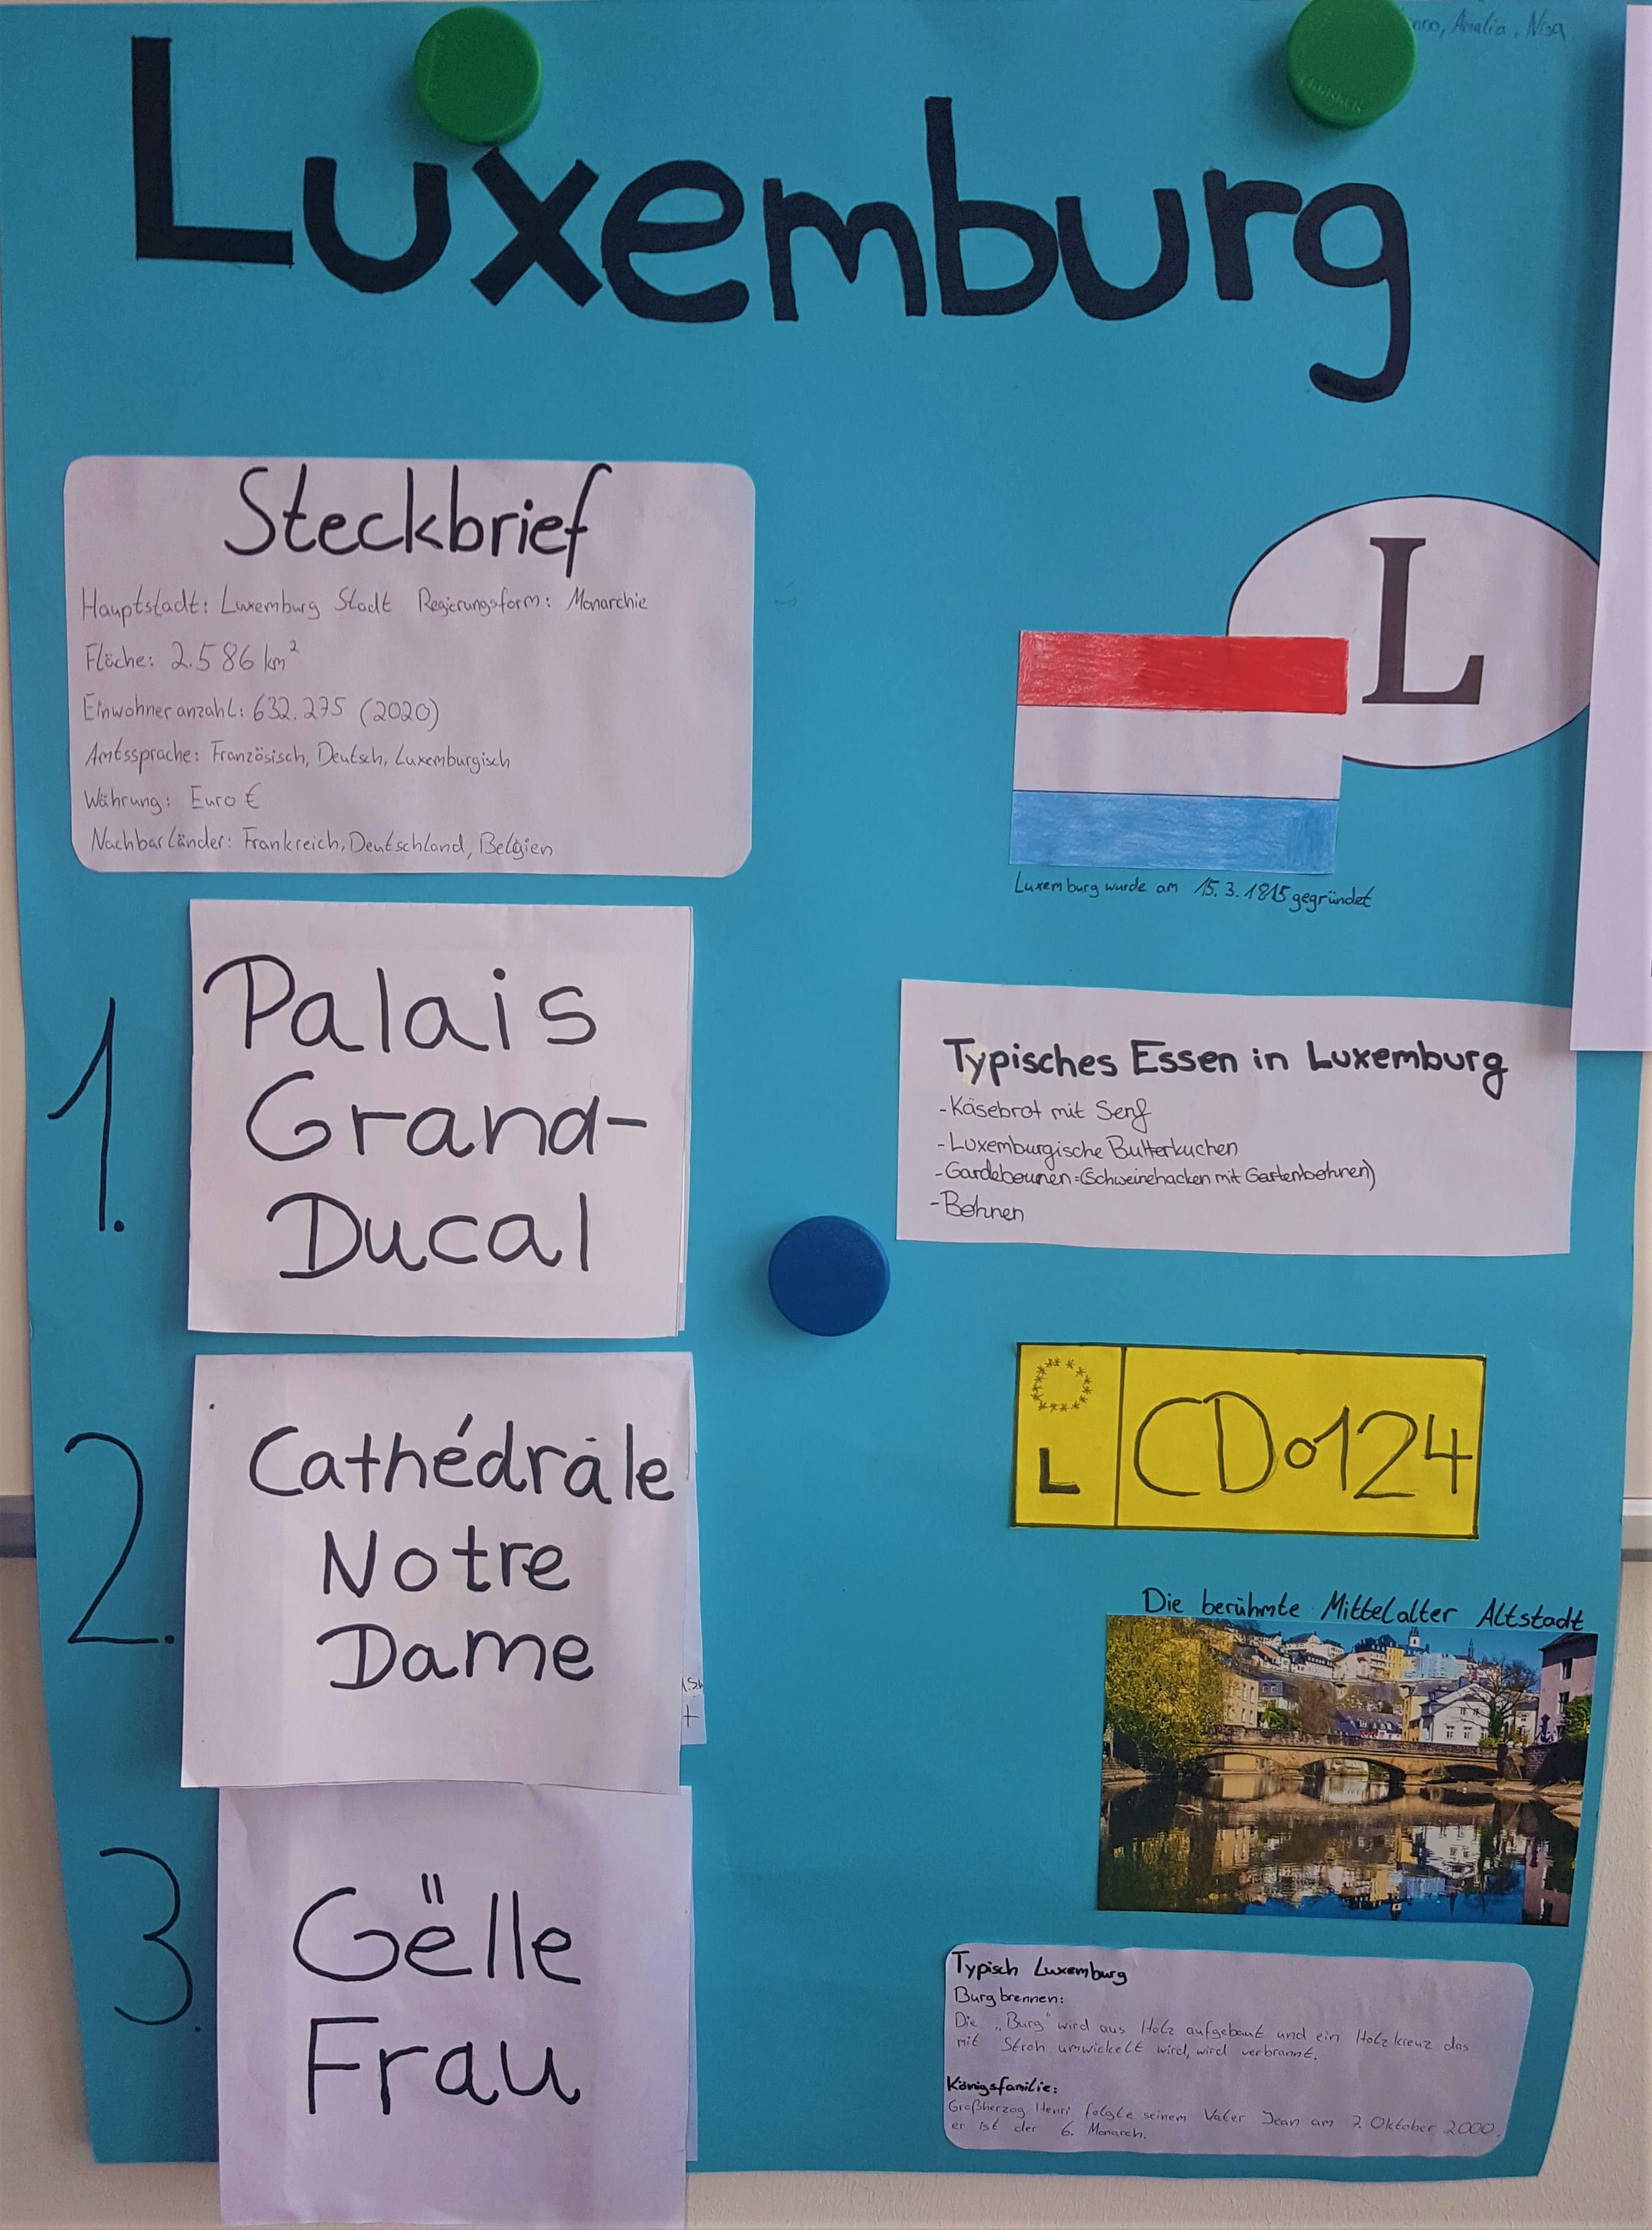 Amalia, Nisa
Luxemburg
Steckbrief
Hauptstadt: Luxemburg Stadt Regierungsform: Monarchie
Fläche: 2.586 km²
Einwohneranzahl: 632.275 (2020)
Amtssprache: Französisch, Deutsch, Luxemburgisch
Währung: Euro €
Nachbarländer: Frankreich, Deutschland, Belgien
L
Luxemburg wurde am 15.3.1815 gegründet
1. Palais
Grand-
Ducal
Typisches Essen in Luxemburg
-Käsebrot mit Senf
-Luxemburgische Butterkuchen
-Gardebounen=(Schweinehacken mit Gartenbohnen)
-Bohnen
L CDo124
2. Cathédrale
Notre
Dame
Die berühmte Mittelalter Altstadt
3. Gëlle
Frau
Typisch Luxemburg
Burgbrennen:
Die „Burg" wird aus Holz aufgebaut und ein Holzkreuz das
mit Stroh umwickelt wird, wird verbrannt.
Königsfamilie:
Großherzog Henri folgte seinem Vater Jean am 7. Oktober 2000,
er ist der 6. Monarch.